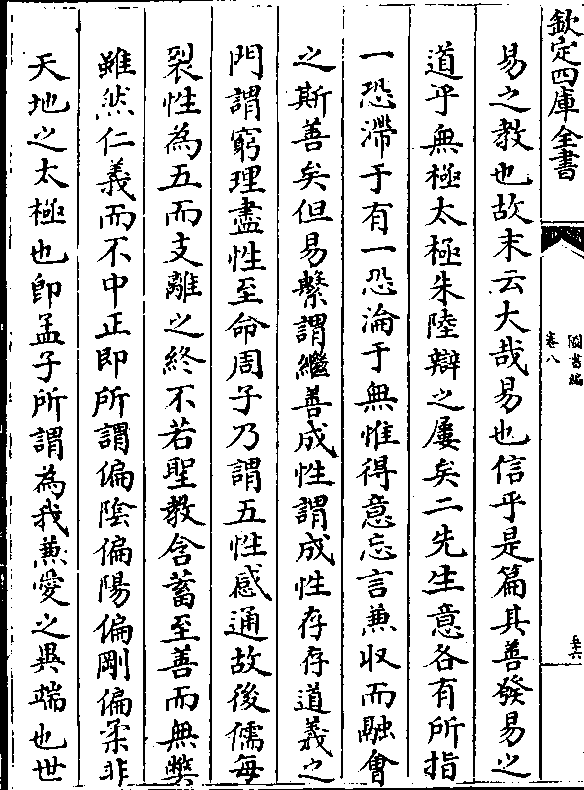 欽定四庫全書
圖書編
卷八
易之教也故末云大哉易也信乎是篇其善發易之
道乎無極太極朱陸辯之屢矣二先生意各有所指
一恐滯于有一恐淪于無惟得意忘言兼収而融會
之斯善矣但易繫謂繼善成性謂成性存存道義之
門謂窮理盡性至命周子乃謂五性感通故後儒每
裂性為五而支離之終不若聖教含蓄至善而無弊
雖然仁義而不中正即所謂偏陰偏陽偏剛偏柔非
天地之太極也即孟子所謂為我兼愛之異端也世